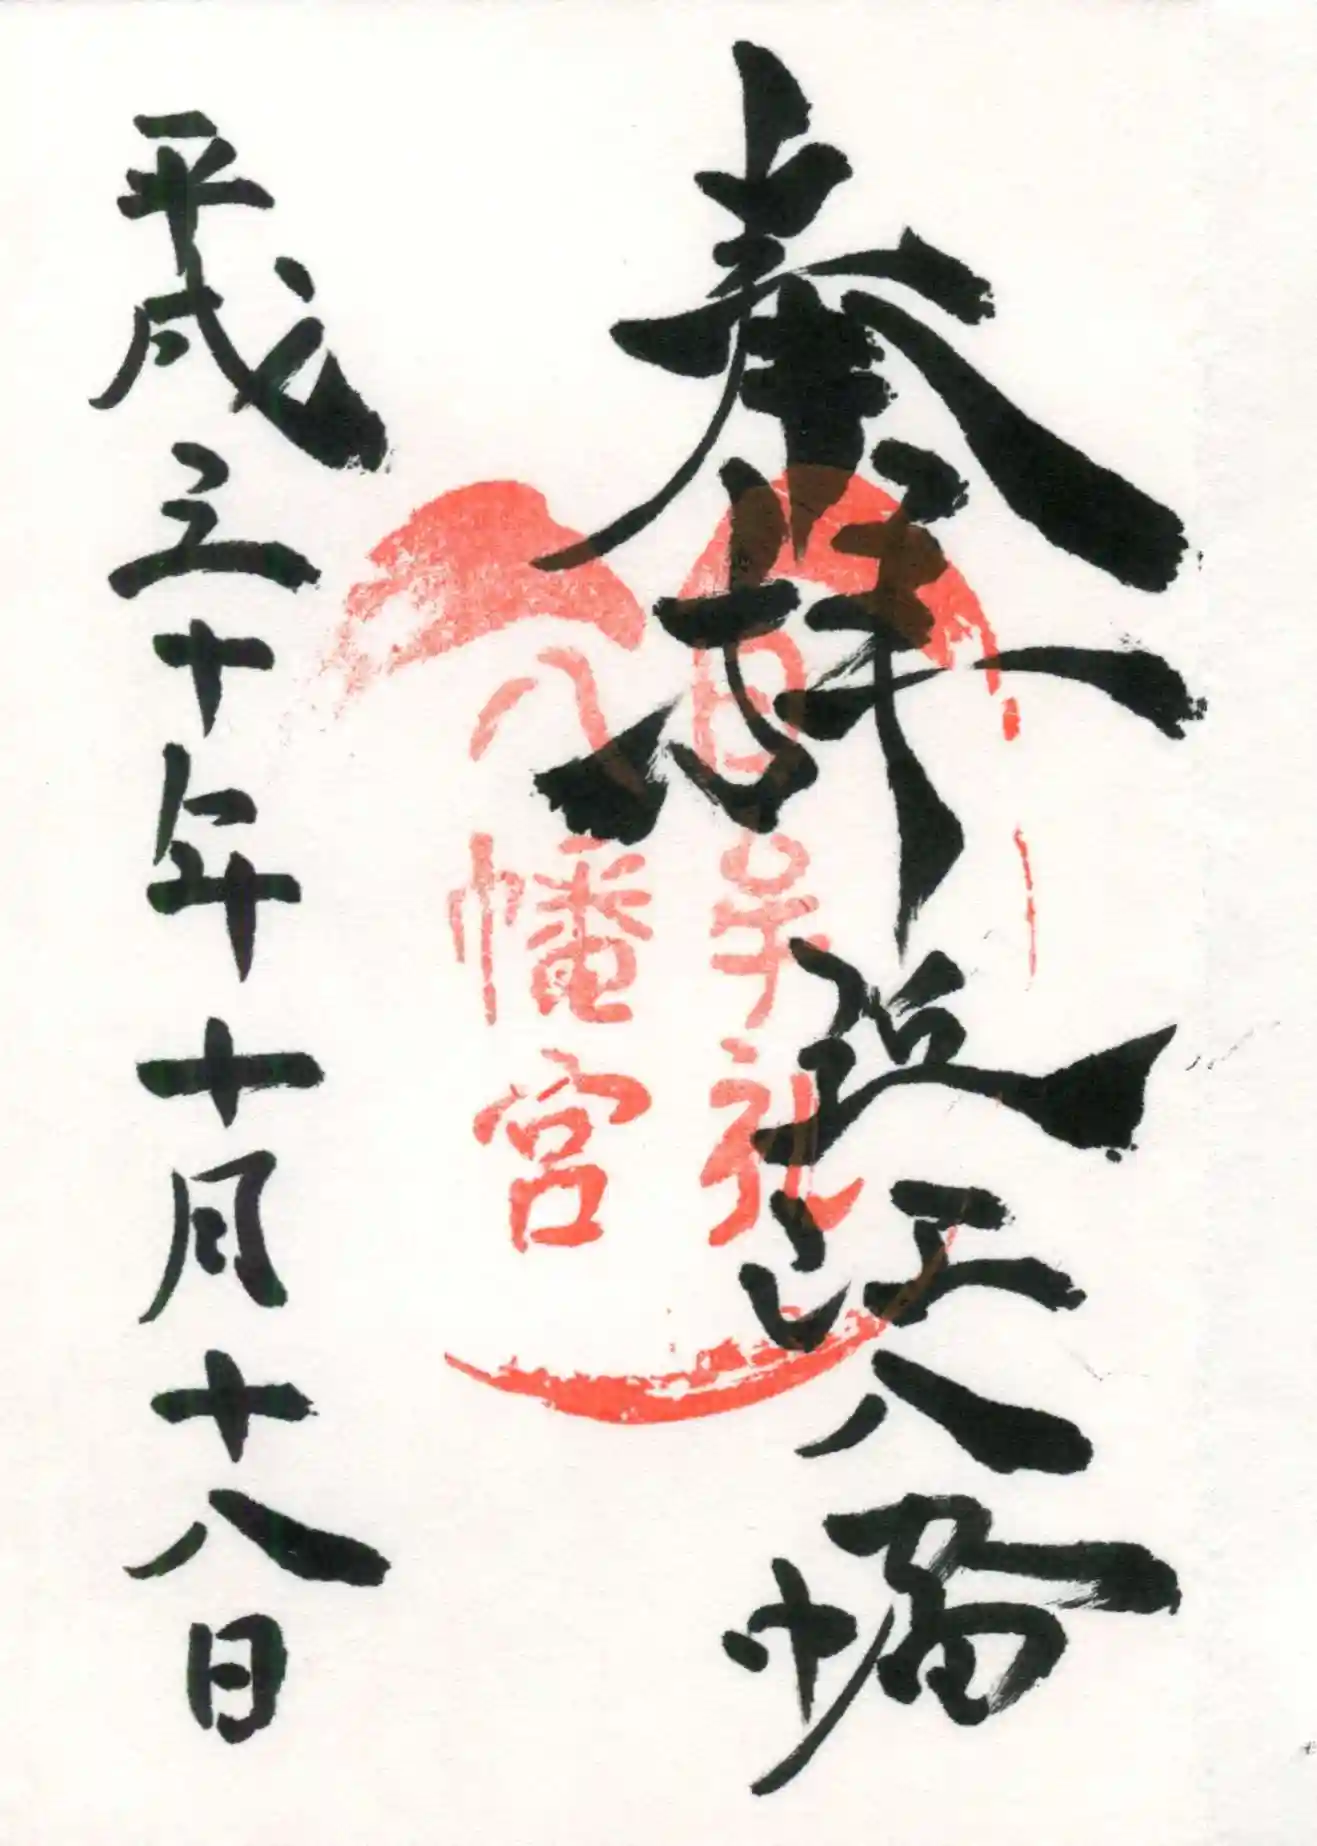 奉拝 近江八幡
日牟礼
八幡宮
平成三十年十月十八日